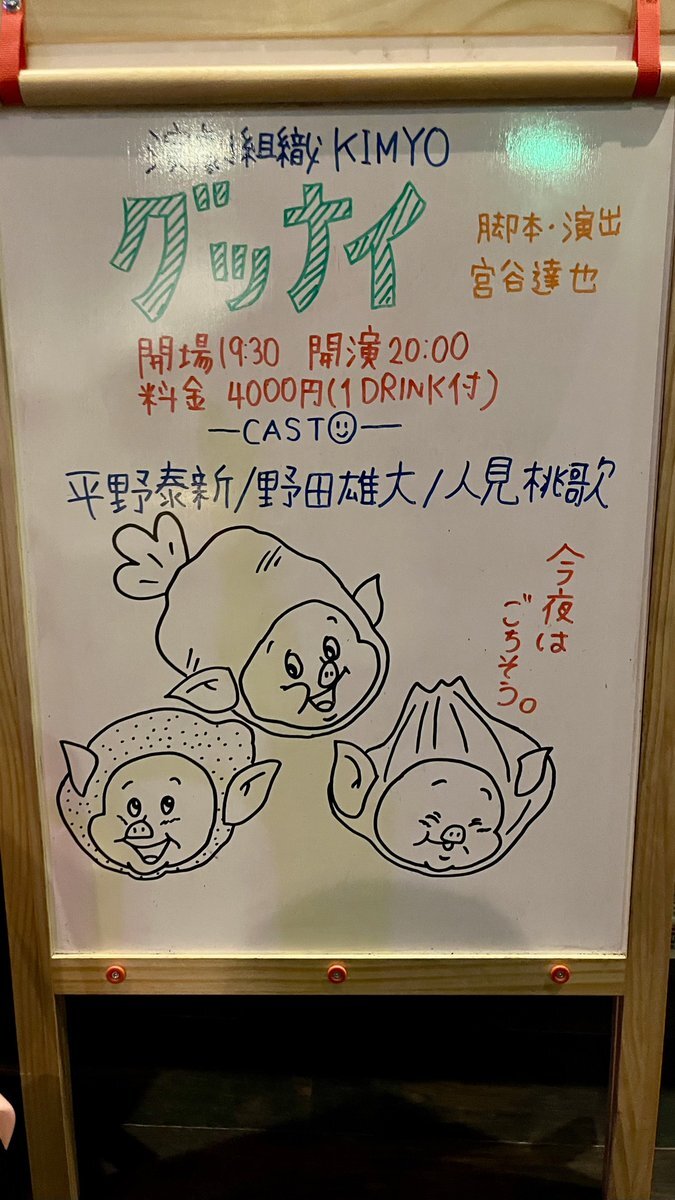 組織 KIMYO
グッナイ
脚本・演出
宮谷達也
開場19:30 開演20:00
料金 4000円(1DRINK付)
—CAST☺—
平野泰新/野田雄大/人見桃歌
今夜は
ごちそう。